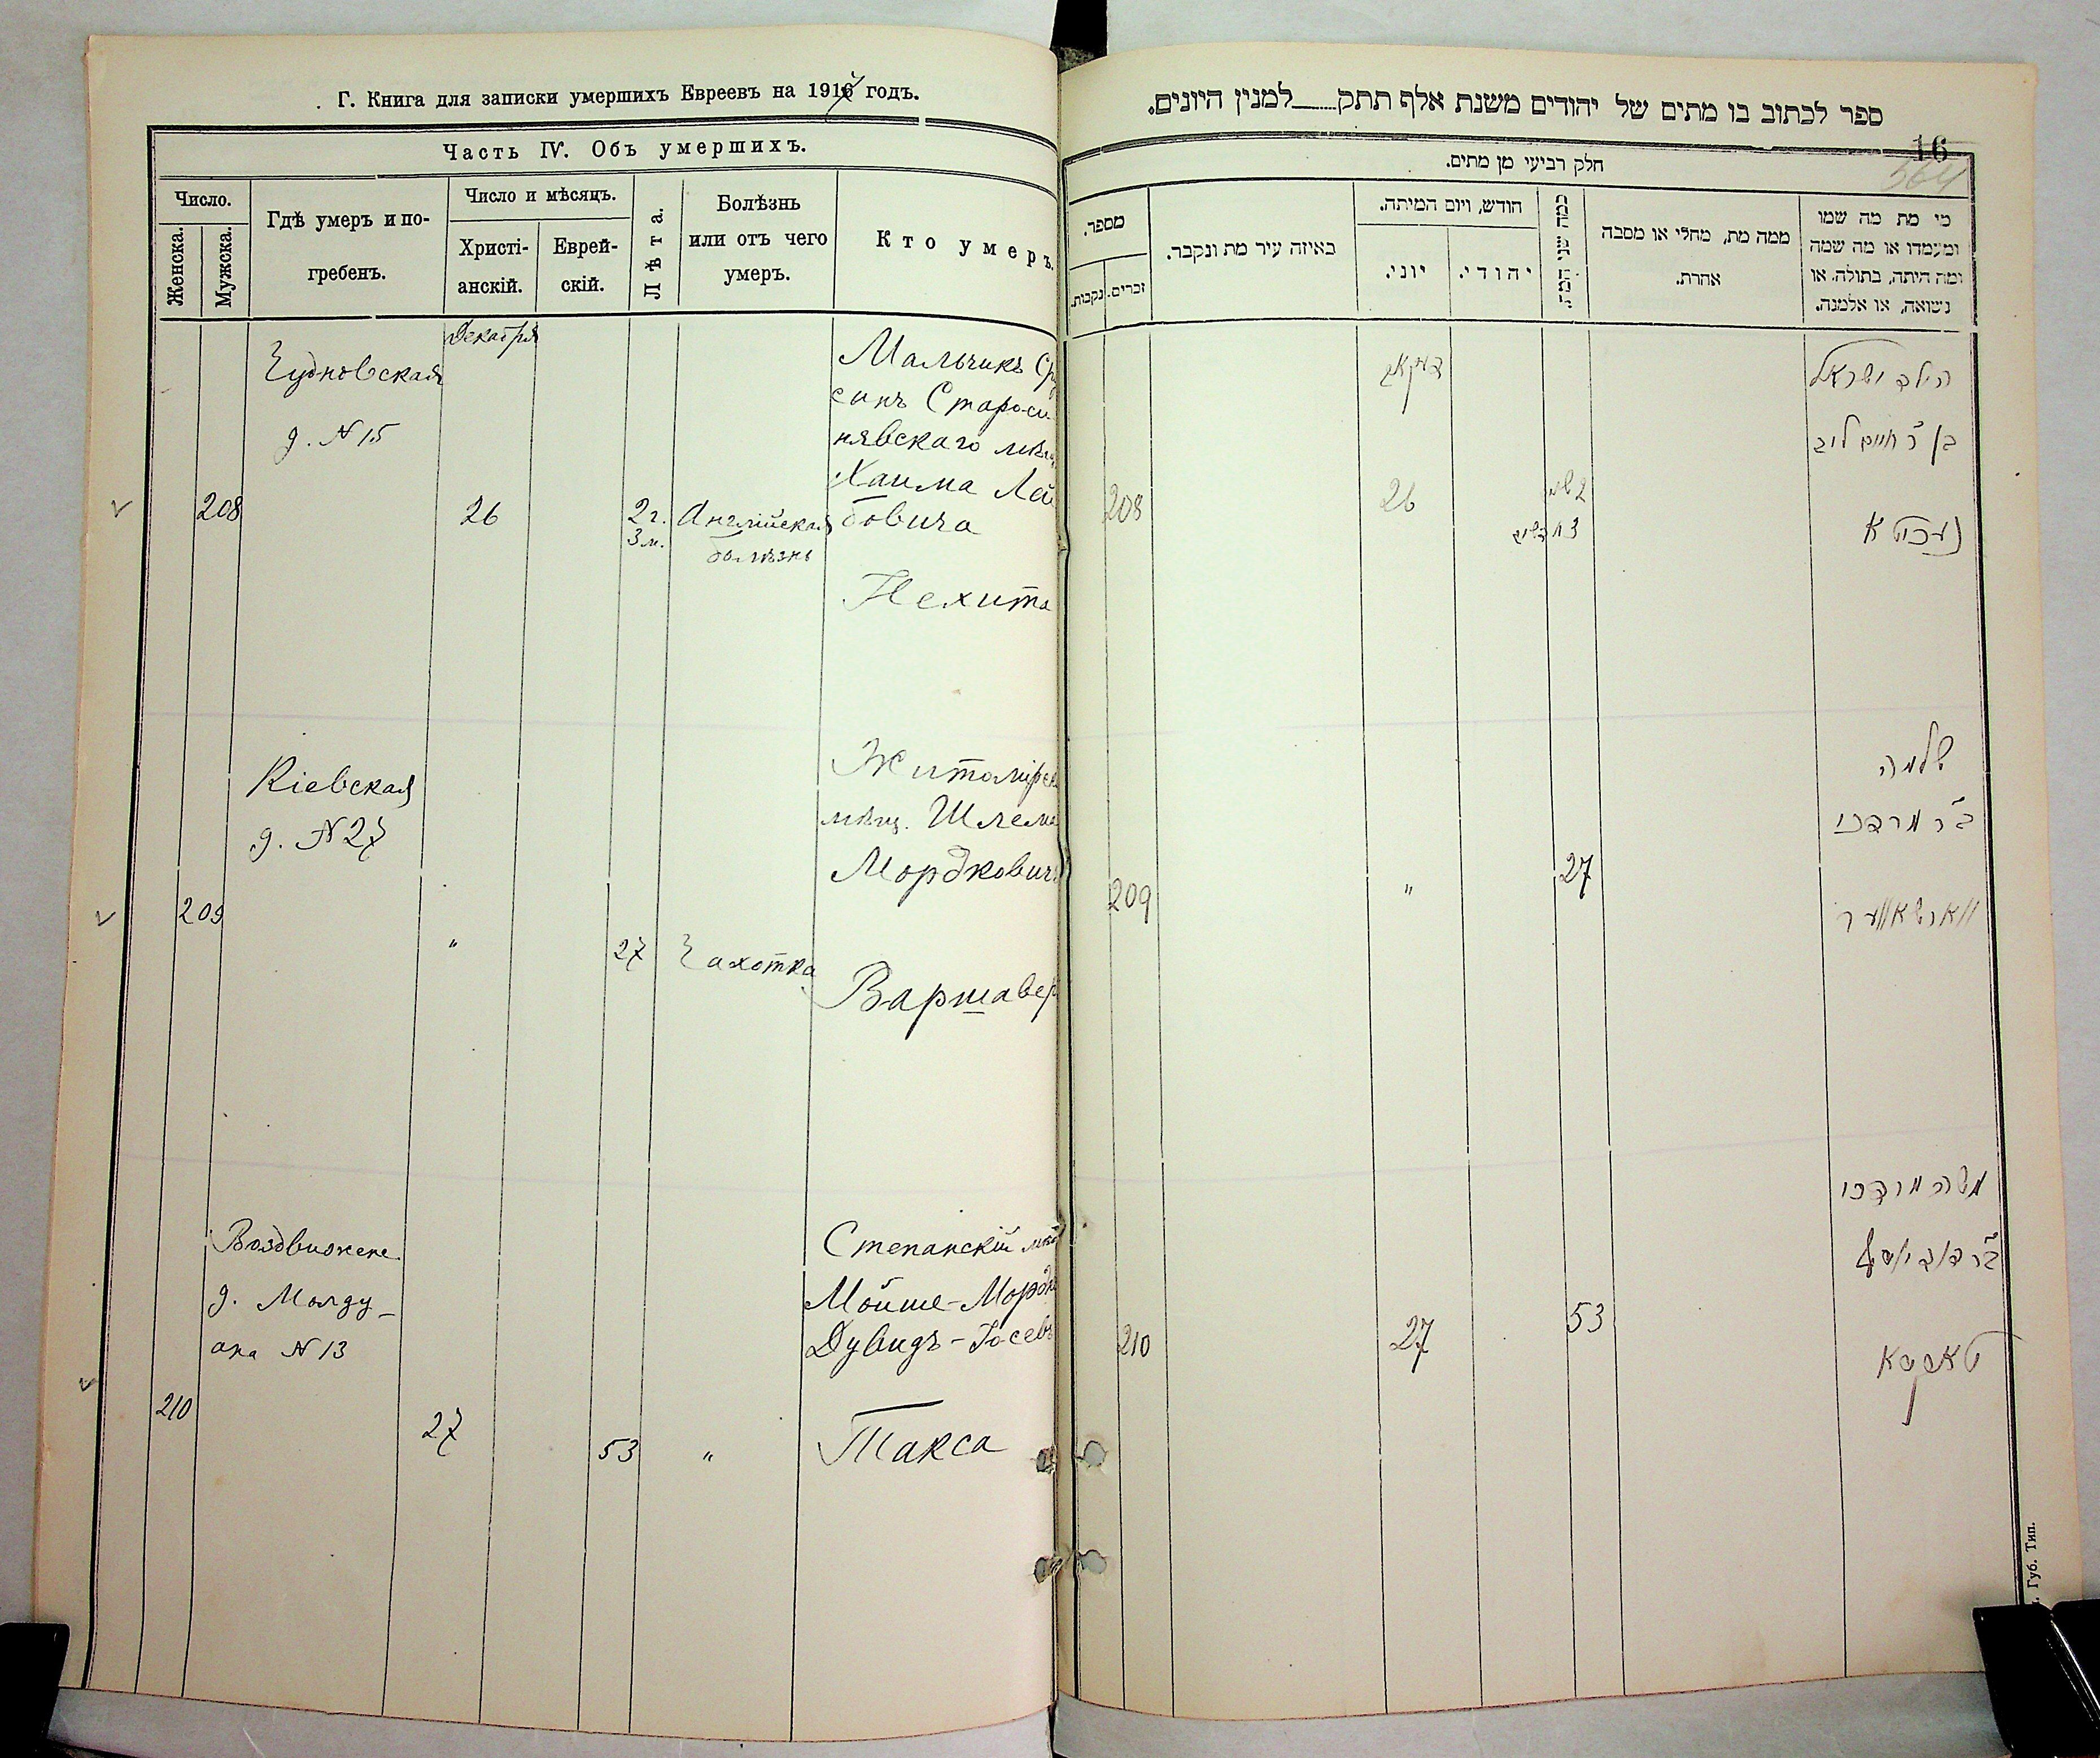 Г. Книга для записки умершихъ Евреевъ на 1917 годъ.
Часть IV. Объ умершихъ.
Число.
Женска.
Мужска.
Гдѣ умеръ и по-
гребенъ.
Число и мѣсяцъ.
Христі-
анскій.
Еврей-
скій.
Лѣта.
Болѣзнь
или отъ чего
умеръ.
Кто умеръ.
Декабря
208
Чудновская
д. N 15
26
2 г.
3 м.
Англійская
болѣзнь
Мальчикъ
сынъ Староси-
нявскаго мѣщ
Хаима Лей
бовича
Нехита
209
Кіевская
д. N 27
"
27
Чахотка
Житомірск
мѣщ. Шлема
Мордковичъ
Варшавер
210
Воздвижене
д. Молду-
ана N 13
27
53
"
Степанскій мѣщ
Мойше-Мордк
Дувидъ-Іосев
Такса
ספר לכתוב בו מתים של יהודים משנת אלף תתק___למנין היונים.
16
564
חלק רביעי מן מתים.
מספר.
זכרים.
נקבות.
באיזה עיר מת ונקבר.
חודש, ויום המיתה.
יוני.
יהודי.
כמה שני
ממה מת, מחלי או מסבה
אהרת.
כי מת מה שמו
ומעמדו או מה שמה
ומה היתה, בתולה, או
נשואה, או אלמנה.
208
26
הילד ישראל
בן ר' חיים ליב
נעכיטא
209
"
27
שלמה
ב"ר מרדכי
ווארשאווער
210
27
53
משה מרדכי
ב"ר דוד יוסף
טאקסא
Губ. Тип.